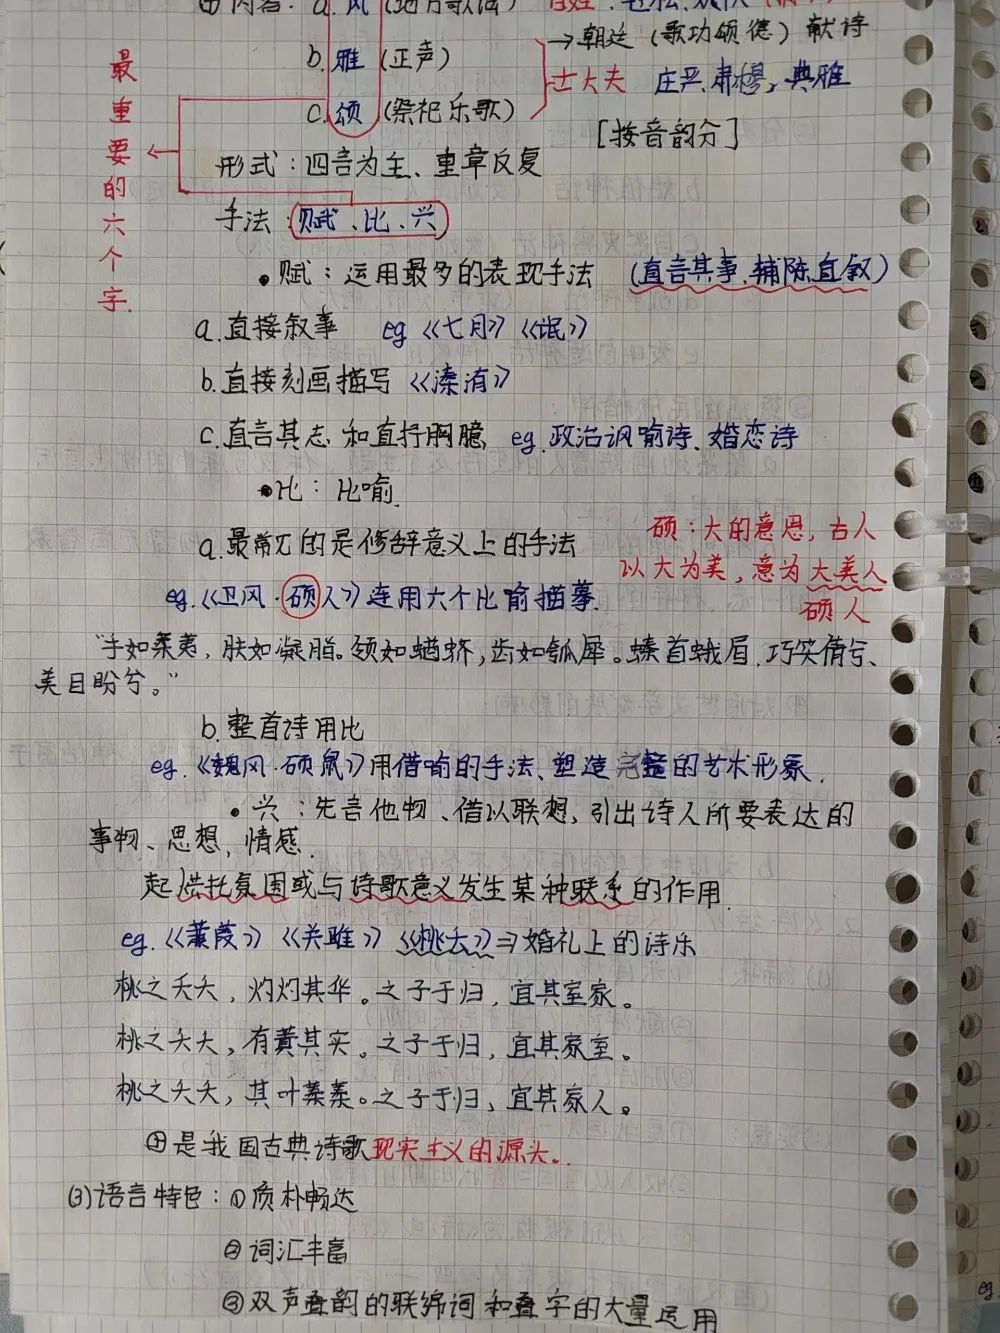 a. 风
b. 雅 (正声)
→朝廷 (歌功颂德) 献诗
士大夫 庄严肃穆, 典雅
c. 颂 (祭祀乐歌)
[按音韵分]
最重要的六个字.
形式：四言为主、重章反复
手法：赋、比、兴
• 赋：运用最多的表现手法 (直言其事、铺陈直叙)
a. 直接叙事 eg《七月》《氓》
b. 直接刻画描写《溱洧》
c. 直言其志 和直抒胸臆, eg. 政治讽喻诗、婚恋诗
• 比：比喻.
a. 最常见的是修辞意义上的手法
硕：大的意思, 古人
以大为美, 意为大美人
硕人
eg.《卫风·硕人》连用六个比喻描摹.
"手如柔荑, 肤如凝脂。领如蝤蛴, 齿如瓠犀。螓首蛾眉, 巧笑倩兮、
美目盼兮。"
b. 整首诗用比
eg.《魏风·硕鼠》用借喻的手法、塑造完整的艺术形象.
• 兴：先言他物、借以联想, 引出诗人所要表达的
事物、思想, 情感.
起烘托氛围或与诗歌意义发生某种联系的作用.
eg.《蒹葭》《关雎》《桃夭》⇒婚礼上的诗乐
桃之夭夭, 灼灼其华。之子于归, 宜其室家。
桃之夭夭, 有蕡其实。之子于归, 宜其家室。
桃之夭夭, 其叶蓁蓁。之子于归, 宜其家人。
④是我国古典诗歌现实主义的源头..
(3)语言特色：①质朴畅达
②词汇丰富
③双声叠韵的联绵词和叠字的大量运用
eg